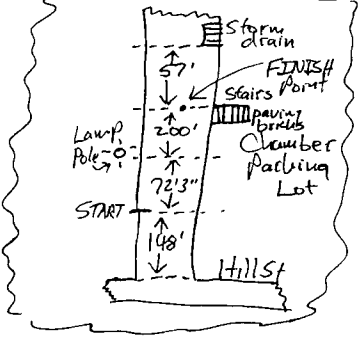 Storm
drain
57'
FINISH
Point
Stairs
paving
bricks
200'
Lamp
Pole
Chamber
Parking
Lot
72'3"
START
148'
Hill St